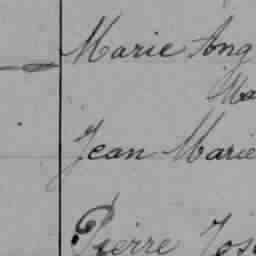 Marie Ang
Ma
Jean Marie
Pierre Jos